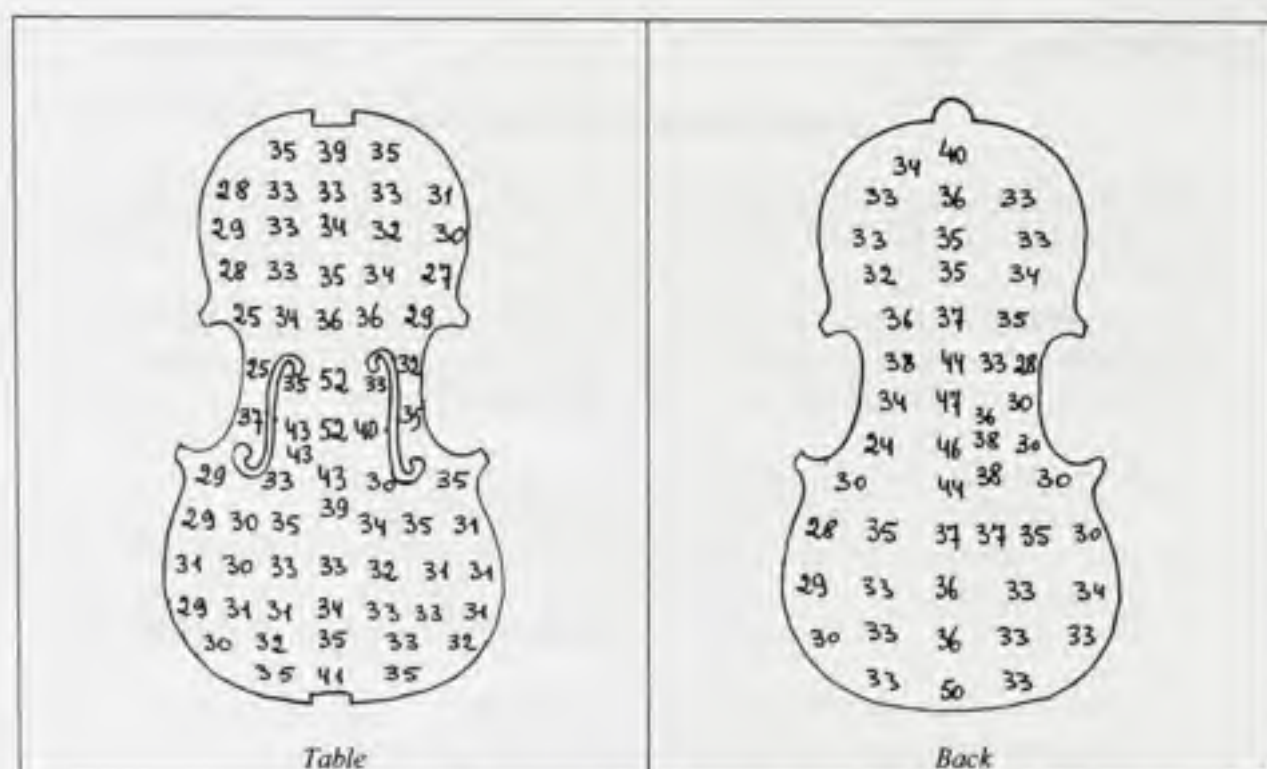 35 39 35
28 33 33 33 31
29 33 34 32 30
28 33 35 34 27
25 34 36 36 29
25 35 52 33 32
37 43 52 40 35
43
29 33 43 30 35
39
29 30 35 34 35 31
31 30 33 33 32 31 31
29 31 31 34 33 33 31
30 32 35 33 32
35 41 35
Table
40
34
33 36 33
33 35 33
32 35 34
36 37 35
38 44 33 28
34 47 36 30
24 46 38 30
30 44 38 30
28 35 37 37 35 30
29 33 36 33 34
30 33 36 33 33
33 50 33
Back